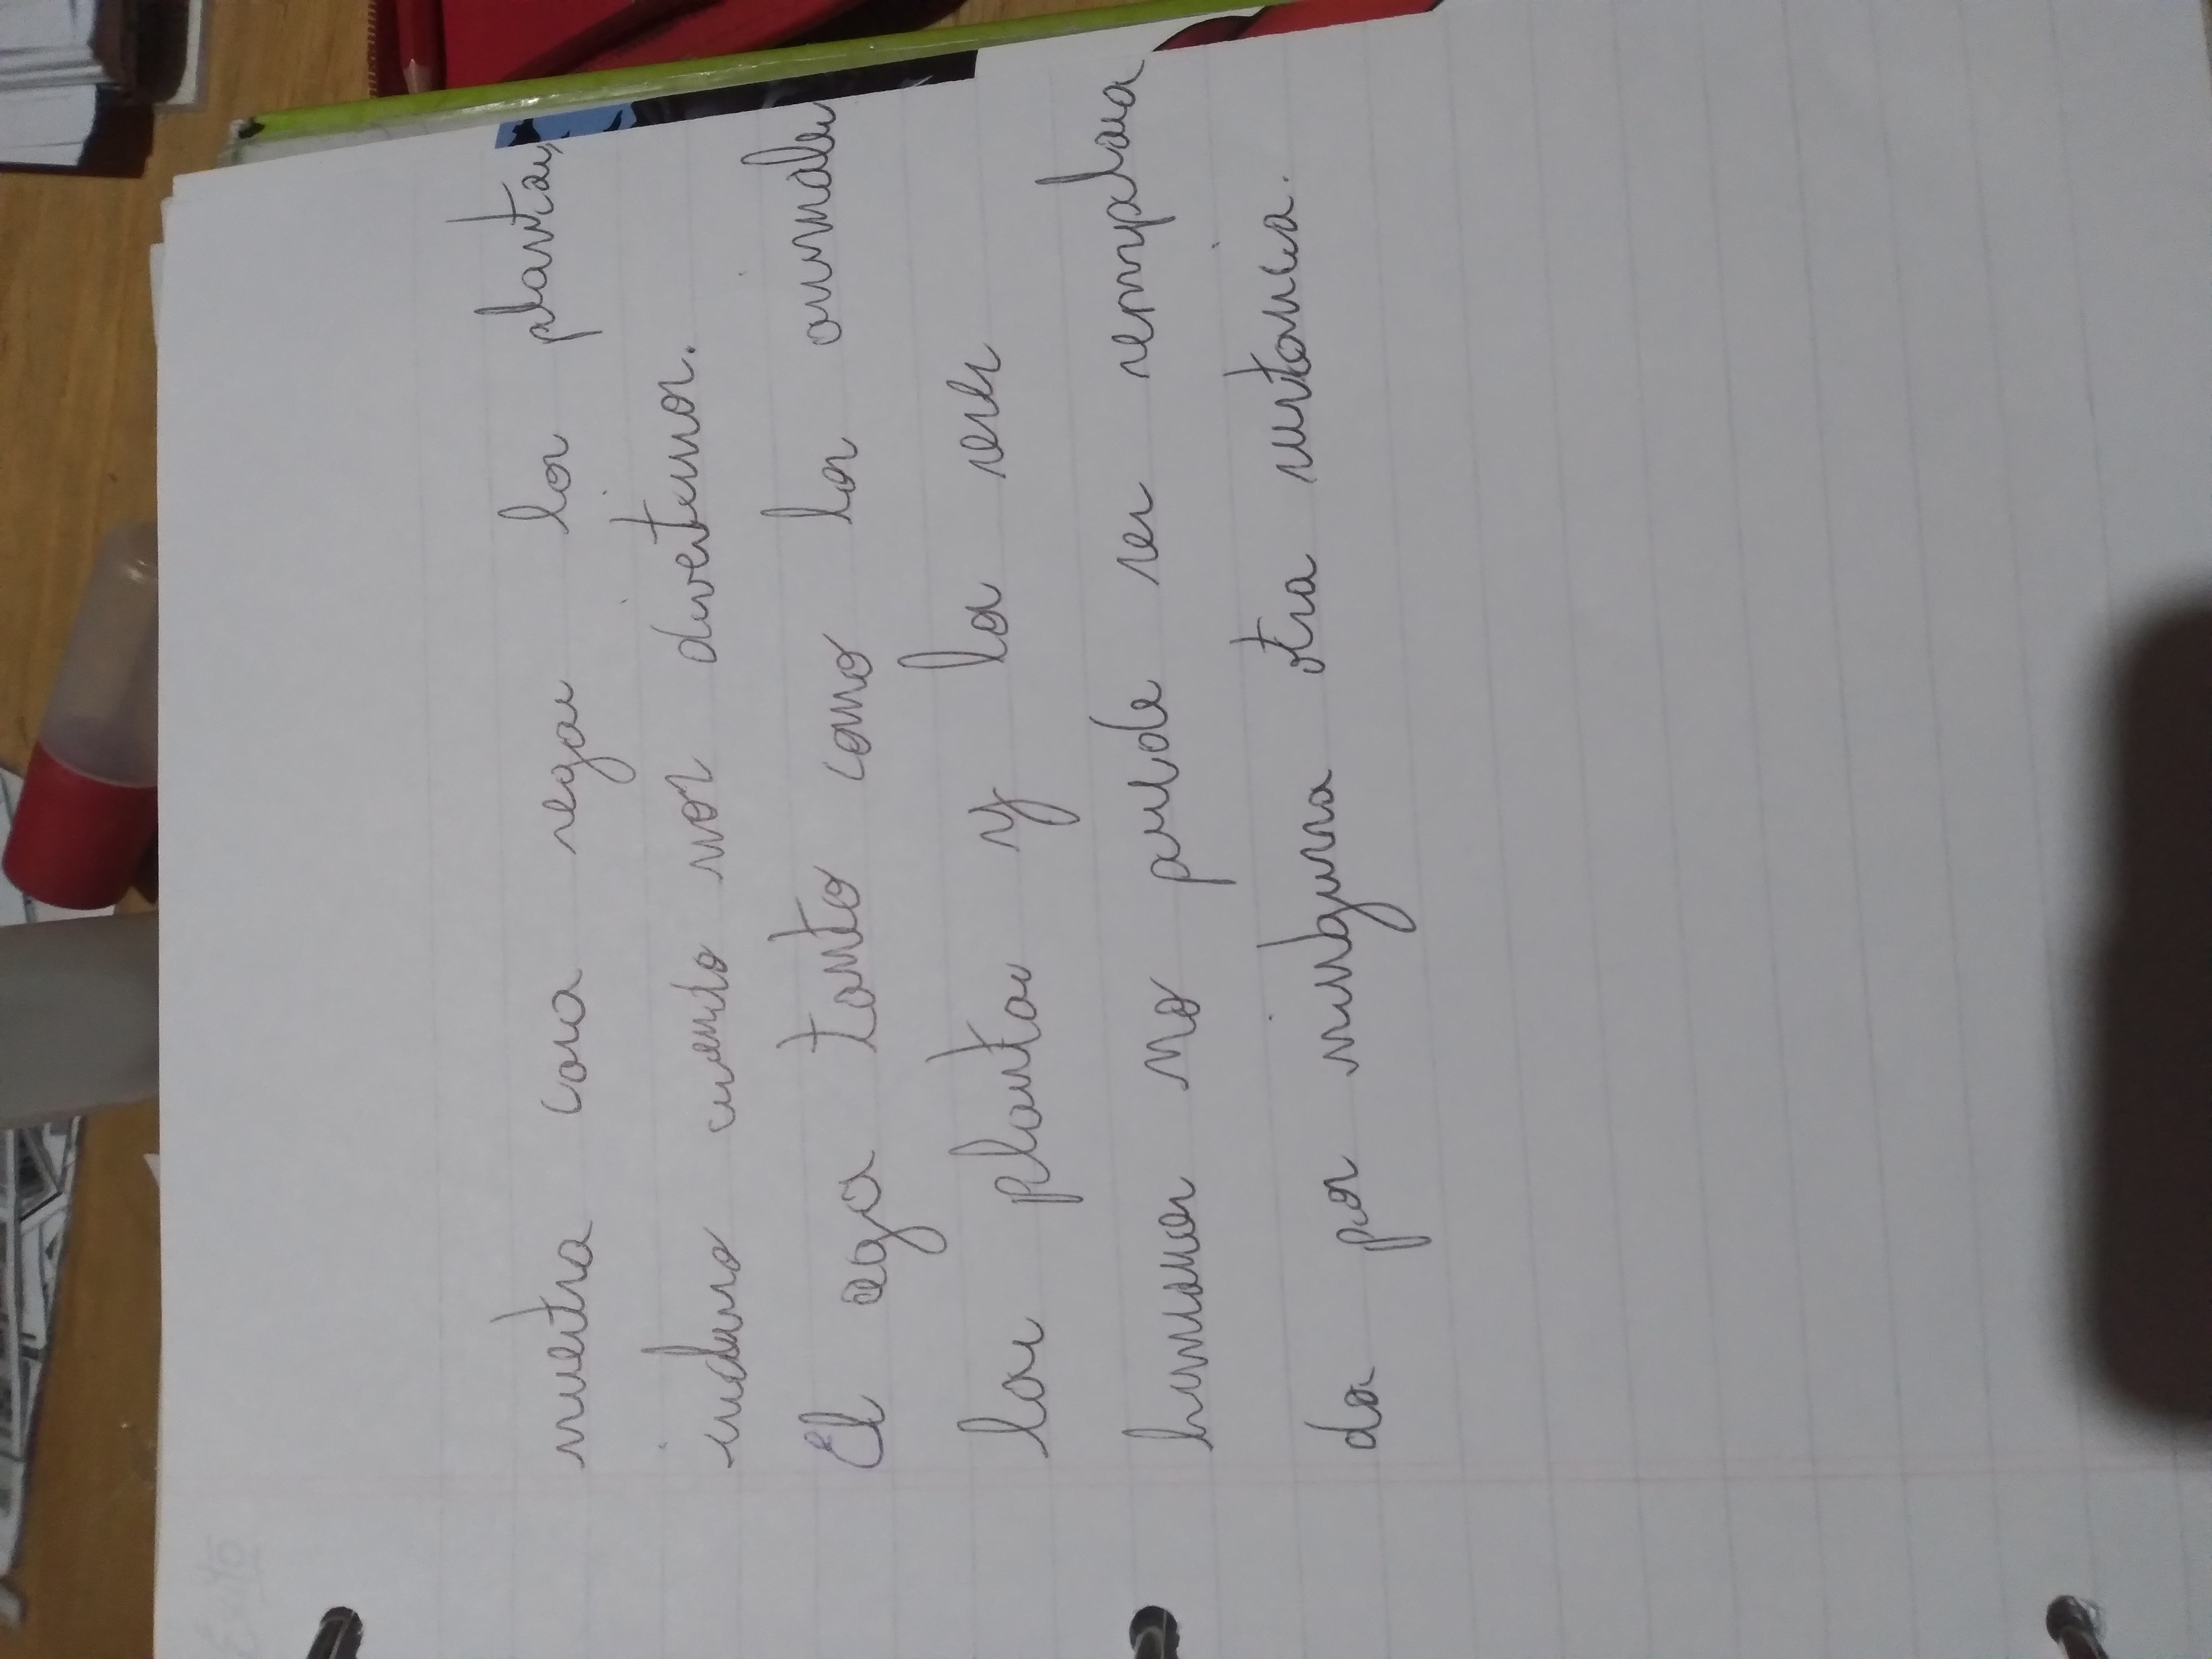 nuestra casa regar las plantas,
incluso cuando nos divertimos.
El agua tanto como los animales
las plantas y los seres
humanos no puede ser remplasa
da por ninguna otra sustancia.